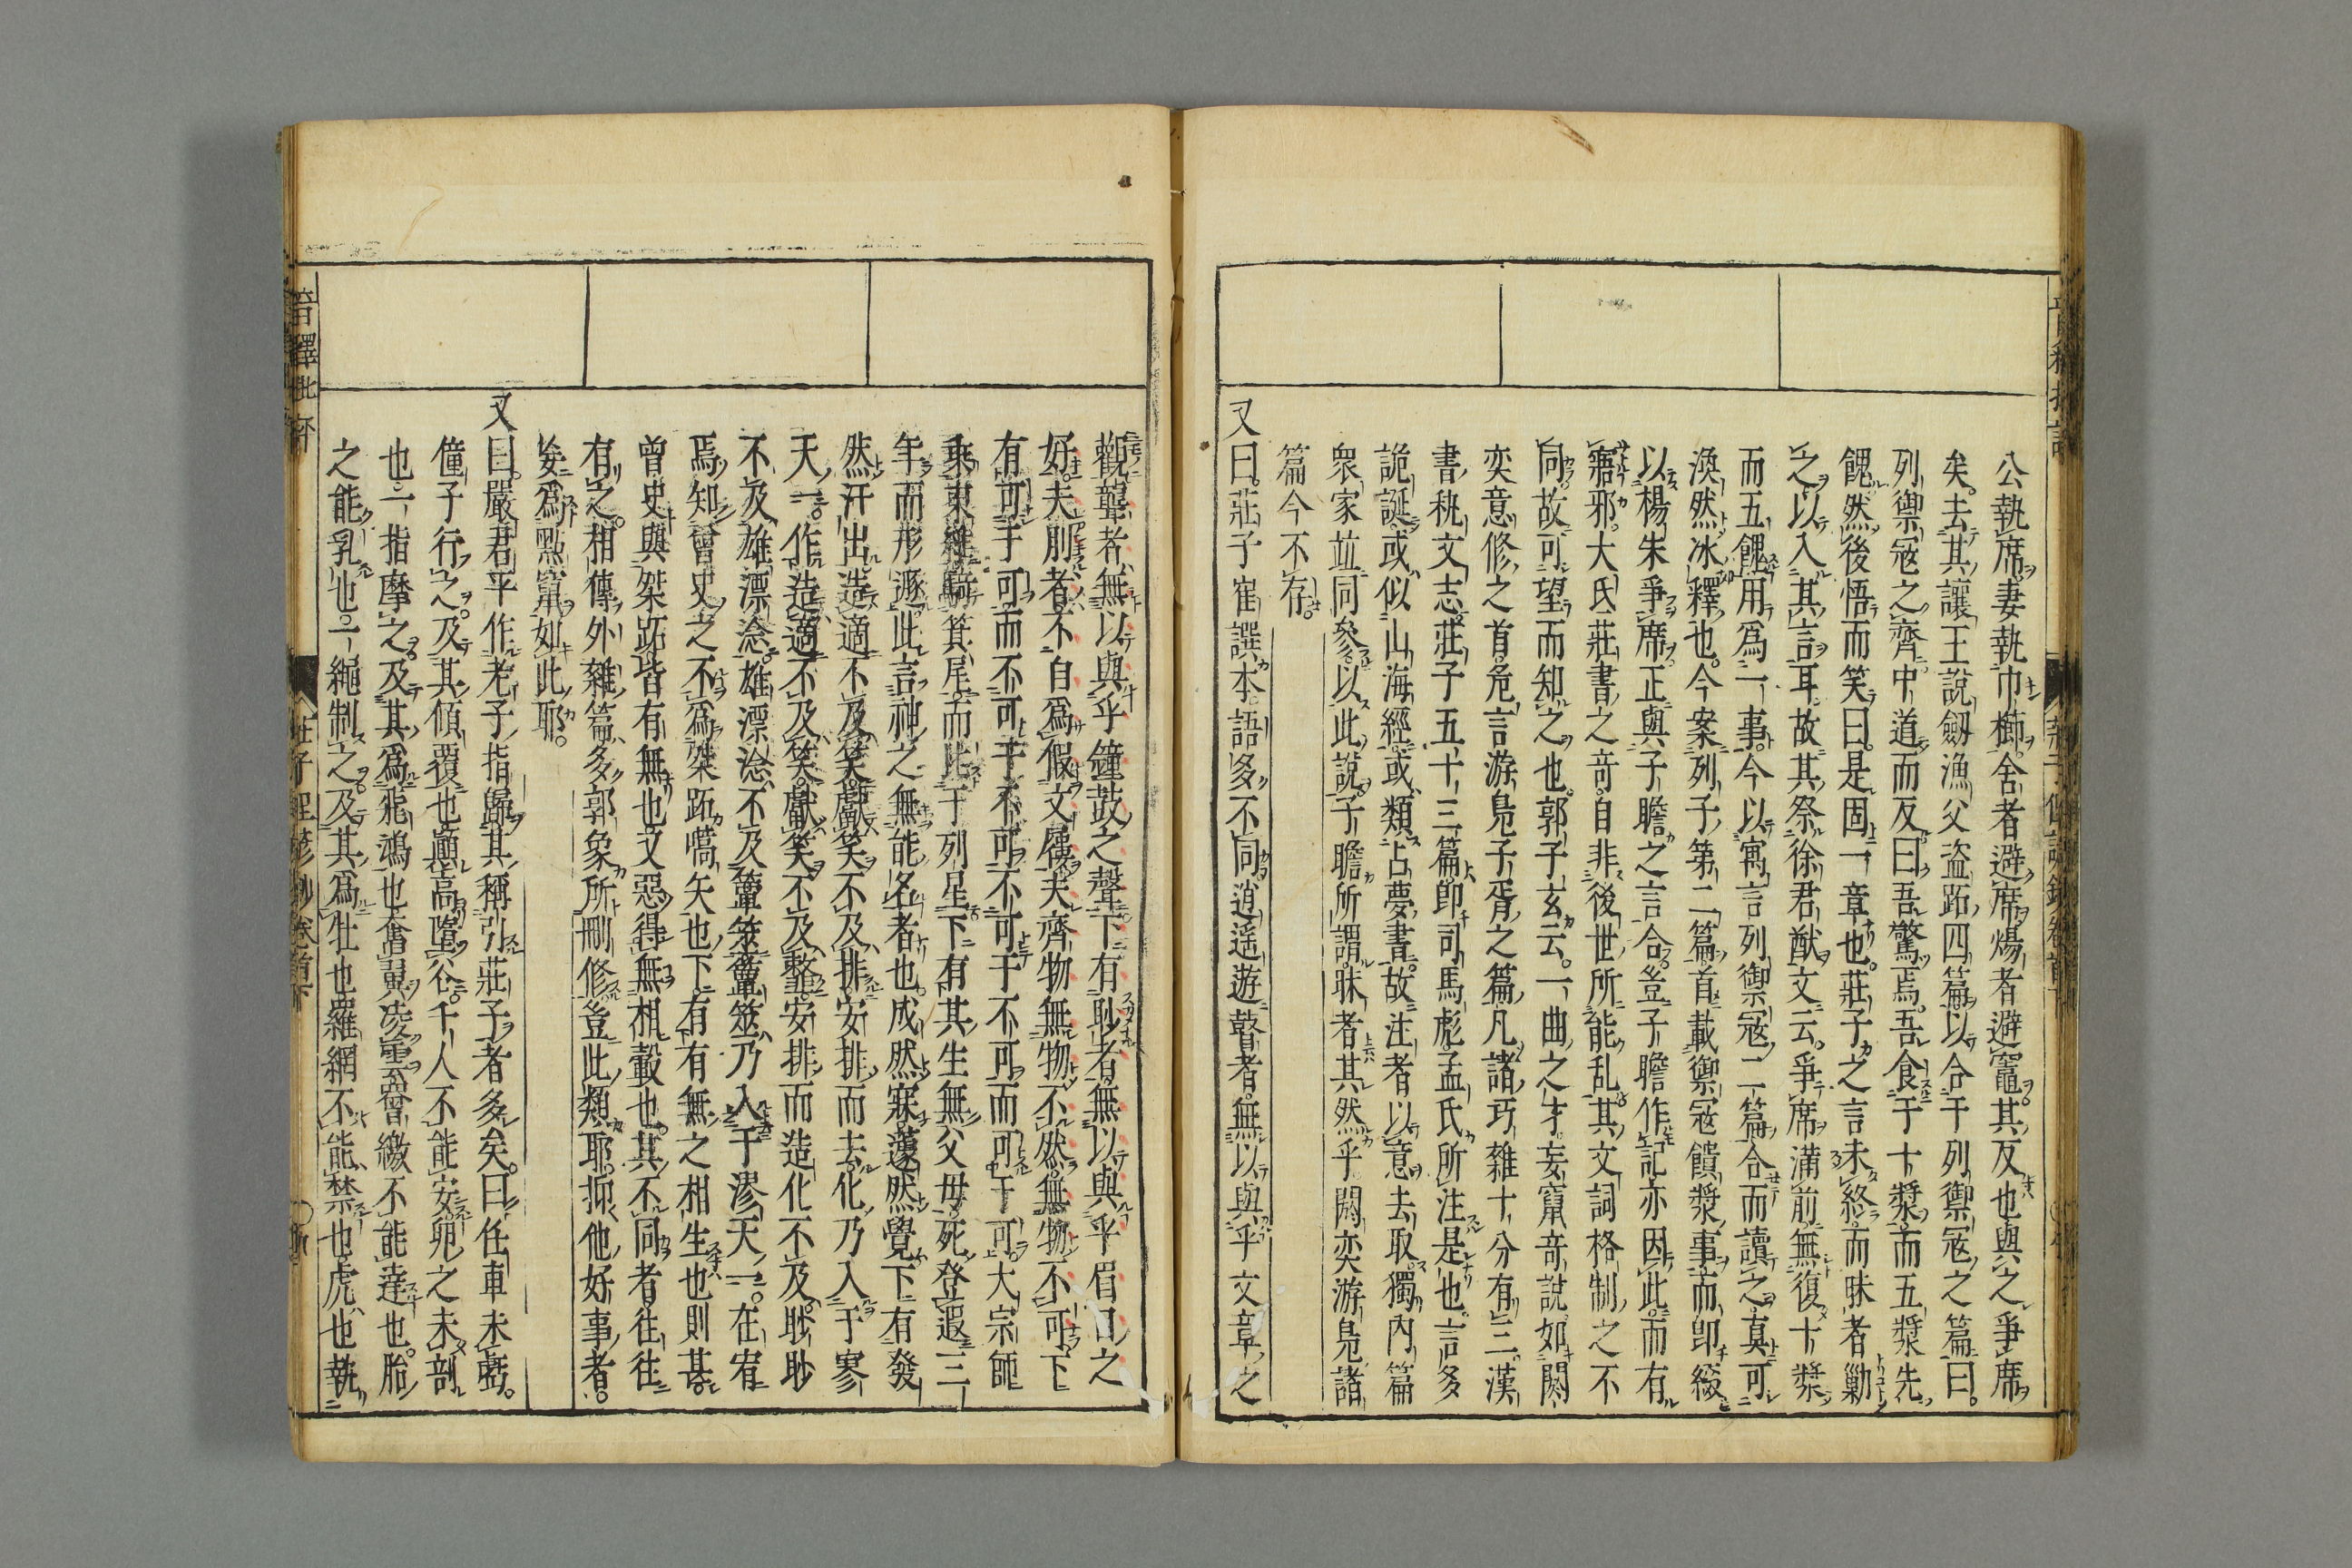 公執席妻執巾櫛舍者避席煬者避竈其反也與之爭席
矣去其讓王說劔漁父盜跖四篇以合于列禦寇之篇曰
列禦寇之齊中道而反曰吾驚焉吾食于十漿而五漿先
餽然後悟而笑曰是固一章也莊子之言未終而昧者勦
之以入其言耳故其祭徐君猷文云爭席滿前無復十漿
而五餽用為一事今以寓言列禦寇二篇合而讀之真可
渙然冰釋也今案列子第二篇首載禦寇饋漿事而即綴
以楊朱爭席正與子瞻之言合豈子瞻作記亦因此而有
寤邪大氐莊書之奇自非後世所能乱其文詞格制之不
同故可望而知之也郭子玄云一曲之才妄竄奇說如閼
奕意修之首危言游鳧子胥之篇凡諸巧雜十分有三漢
書秇文志莊子五十三篇即司馬彪孟氏所注是也言多
詭誕或似山海經或類占夢書故注者以意去取獨內篇
眾家並同參以此說子瞻所謂昧者其然乎閼奕游鳧諸
篇今不存
又曰莊子崔譔本語多不同逍遥遊瞽者無以與乎文章之
觀聾者無以與乎鐘鼓之聲下有眇者無以與乎眉目之
好夫刖者不自為假文屨夫齊物無物不然無物不可下
有可于可而不可于不可不可于不可而可于可大宗師
乘東維騎箕尾而比于列星下有其生無父母死登遐三
年而形遯此言神之無能名者也成然寐蘧然覺下有發
然汗出造適不及笑獻笑不及排安排而去化乃入于寥
天一作造適不及笑獻笑不及鏨安排而造化不及眇眇
不及雄漂淰雄漂淰不及簟筮簟筮乃入于漻天一在宥
焉知曾史之不為桀跖嚆矢也下有有無之相生也則甚
曾史與桀跖皆有無也又惡得無相轂也其不同者往往
有之相傳外雜篇多郭象所刪修豈此類耶抑他好事者
妄為點竄如此耶
又曰嚴君平作老子指歸其稱引莊子者多矣曰任車未虧
僮子行之及其傾覆也顚高墮谷千人不能安卵之未剖
也一指摩之及其為飛鴻也奮翼凌雲罾繳不能達也胎
之能乳也一繩制之及其為壯也羅網不能禁也虎也執
音釋批評
莊子
卷首下